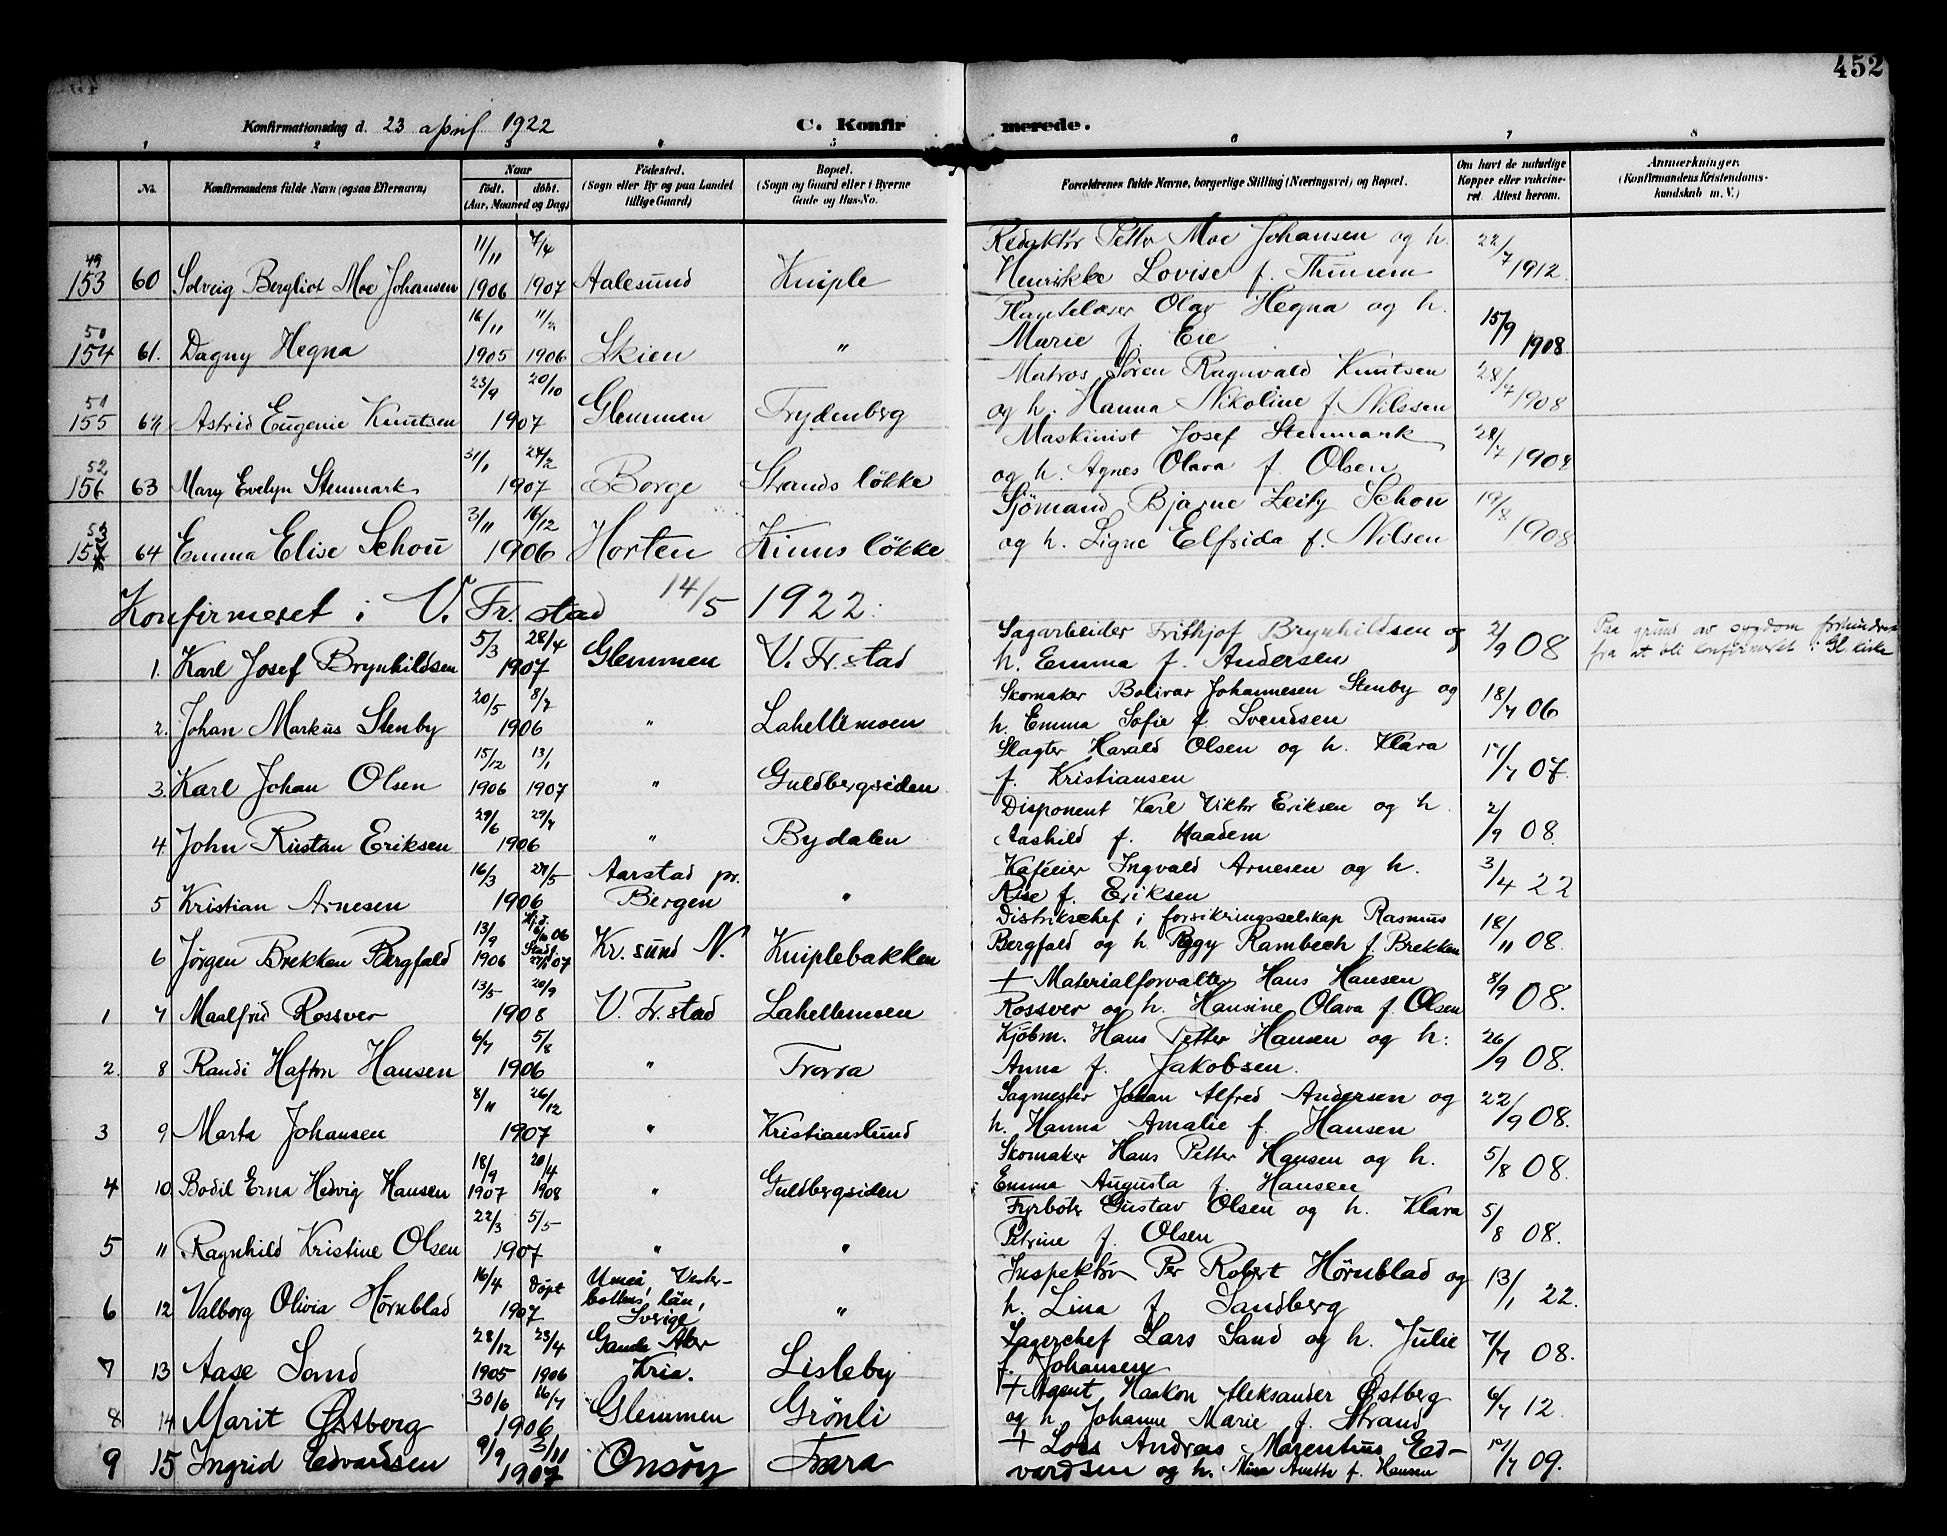 452
Konfirmationsdag d. 23 april 1922 C. Konfirmerede.
1 2 3 4 5 6 7 8
No. Konfirmandens fulde Navn (ogsaa Efternavn) Naar født. døbt. (Aar, Maaned og Dag) Fødested. (Sogn eller By og paa Landet tillige Gaard) Bopæl. (Sogn og Gaard eller i Byerne Gade og Hus-No. Forældrenes fulde Navne, borgerlige Stilling (Næringsvei) og Bopæl. Om havt de naturlige Kopper eller vakcineret. Attest herom. Anmærkninger. (Konfirmandens Kristendomskundskab m. V.)
49 11/11 7/4 Redaktør Petter Moe Johansen og h. 22/7
153 60 Solveig Bergliot Moe Johansen 1906 1907 Aalesund Kniple Henrikke Lovise f. Thunem 1912.
50 16/11 11/2 Olav Hegna og h. 15/9
154 61. Dagny Hegna 1905 1906 Skien " Marie f. Eie 1908
51 23/9 20/10 Matros Søren Ragnvald Knutsen 28/7
155 62 Astrid Eugenie Knutsen 1907 Glemmen Frydenberg og h. Hanna Nikoline f. Nilssen 1908
52 31/1 24/2 Maskinist Josef Stenmark 28/7
156 63 Mary Evelyn Stenmark 1907 Borge Strands løkke og h. Agnes Olava f. Olsen 1908
53 3/11 16/12 Sjömand Bjarne Schou 19/8
157 64 Emma Elise Schou 1906 Horten Kinus løkke og h. Signe Elfrida f. Nilsen 1908
Konfirmeret i V. Fr.stad 14/5 1922.
5/3 28/4 Sagarbeider Frithjof Brynhildsen og 2/9 08 Paa grund av sygdom forhindret
1. Karl Josef Brynhildsen 1907 Glemmen V. Fr.stad h. Emma f. Andersen fra at bli konfirmeret i Gl. kirke
20/5 8/7 Skomaker Bolivar Johannesen Stenby og 18/7 06
2. Johan Markus Stenby 1906 " Lahellemoen h. Emma Sofie f. Svendsen
15/12 13/1 Slagter Harald Olsen og h. Klara 17/7 07.
3. Karl Johan Olsen 1906 1907 " Guldbergsiden f. Kristiansen
29/6 29/7 Disponent Karl Viktor Eriksen og h. 2/9 08.
4. John Rustan Eriksen 1906 " Bydalen Aashild f. Haadem
16/3 27/5 Aarstad pr. Kaféeier Ingvald Arnesen og h. 3/4 22
5 Kristian Arnesen 1906 Bergen " Rise f. Eriksen
13/9 06 Distrikschef i forsikringsselskap Rasmus 18/11 08.
6 Jørgen Brekken Bergfald 1906 07 Kr.sund N. Kniplebakken Bergfald og h Peggy Rambech f. Brekken
13/5 20/9 + Materialforvalter Hans Hansen 8/9 08.
1 7 Maalfrid Rossver 1908 V. Fr.stad Lahellemoen Rossver og h. Hansine Olava f. Olsen
6/7 5/8 Kjøbm. Hans Petter Hansen og h. 26/9 08.
2. 8 Randi Hafton Hansen 1906 " Trara Anna f. Jakobsen.
8/11 26/12 Sagmester Johan Alfred Andersen og 22/9 08.
3 9 Marta Johansen 1907 " Kristianslund h. Hanna Amalie f. Hansen
18/9 20/4 Skomaker Hans Petter Hansen og h. 5/8 08.
4 10 Bodil Erna Hedvig Hansen 1907 1908 " Guldbergsiden Emma Augusta f. Hansen
22/3 5/5 Fyrbøter Gustav Olsen og h. Klara 5/8 08.
5 11 Ragnhild Kristine Olsen 1907 " " Petrine f. Olsen
16/4 Døpt Umeå, Vester- Inspektør Per Robert Hörnblad og 13/1 22.
6 12 Valborg Olivia Hörnblad 1907 bottens län, Sverige " h. Lina f. Sandberg
28/12 23/4 Gamle Aker Lagerchef Lars Sand og h. Julie 7/7 08.
7 13 Aase Sand 1905 1906 Kria. Lisleby f. Johansen
30/6 16/7 + Agent Haakon Aleksander Østberg 6/7 12.
8 14 Marit Østberg 1906 Glemmen Grønli og h. Johanne Marie f. Strand
9/9 3/11 + Lars Andreas Marentius Ed- 10/7 09.
9 15 Ingrid Edvardsen 1907 Onsøy Trara vardsen og h. Mina Anette f. Hansen